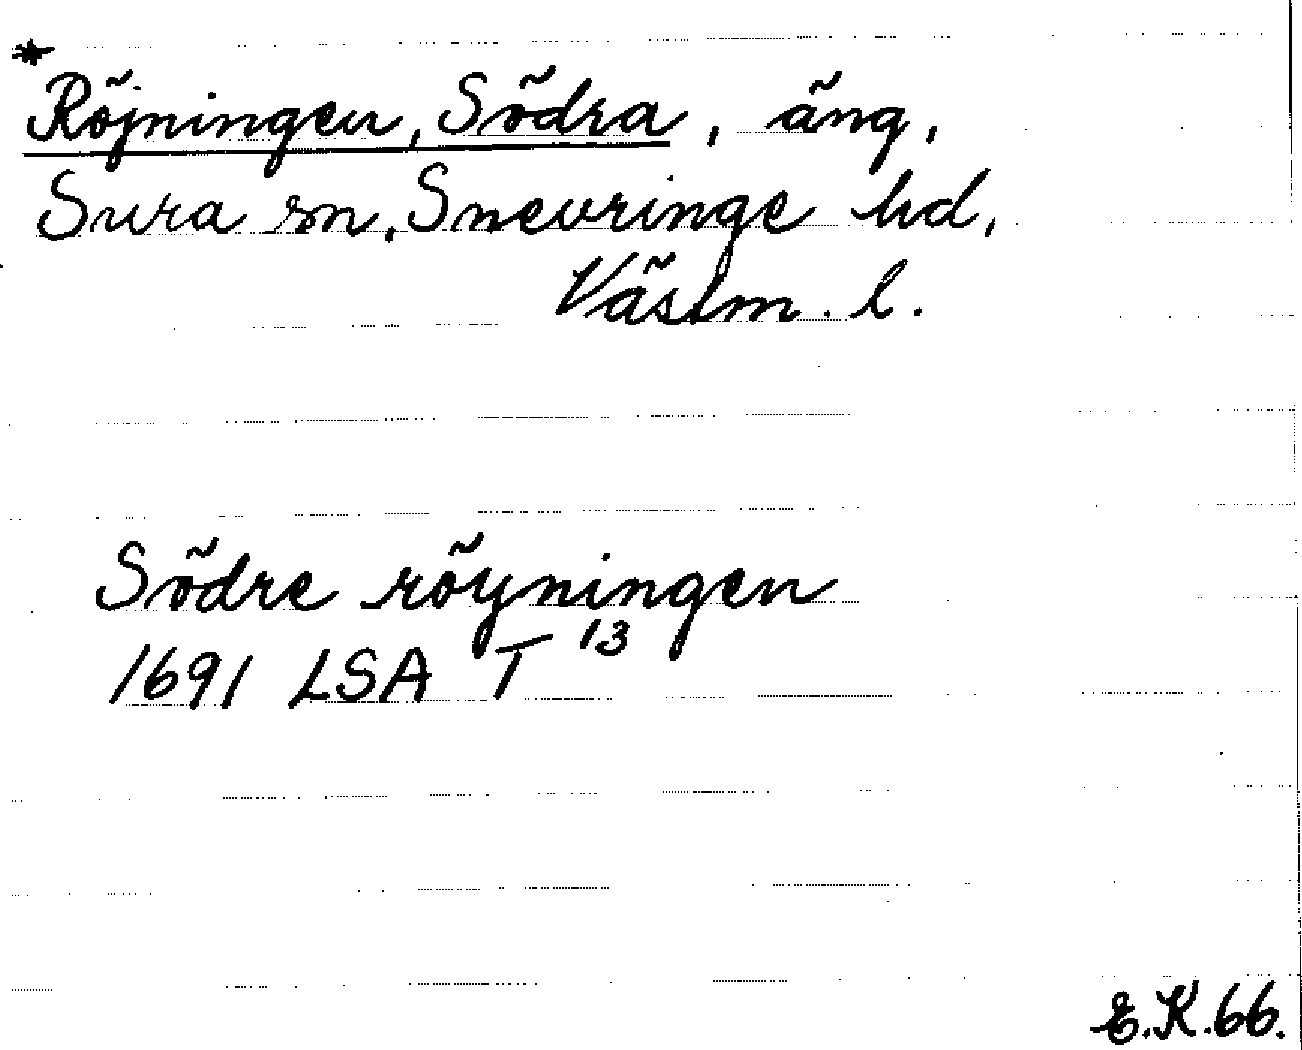 *
Röjningen, Södra, äng,
Sura sn, Snevringe hd,
Västm. l.
Södre röyningen
1691 LSA T 13
E.K. 66.